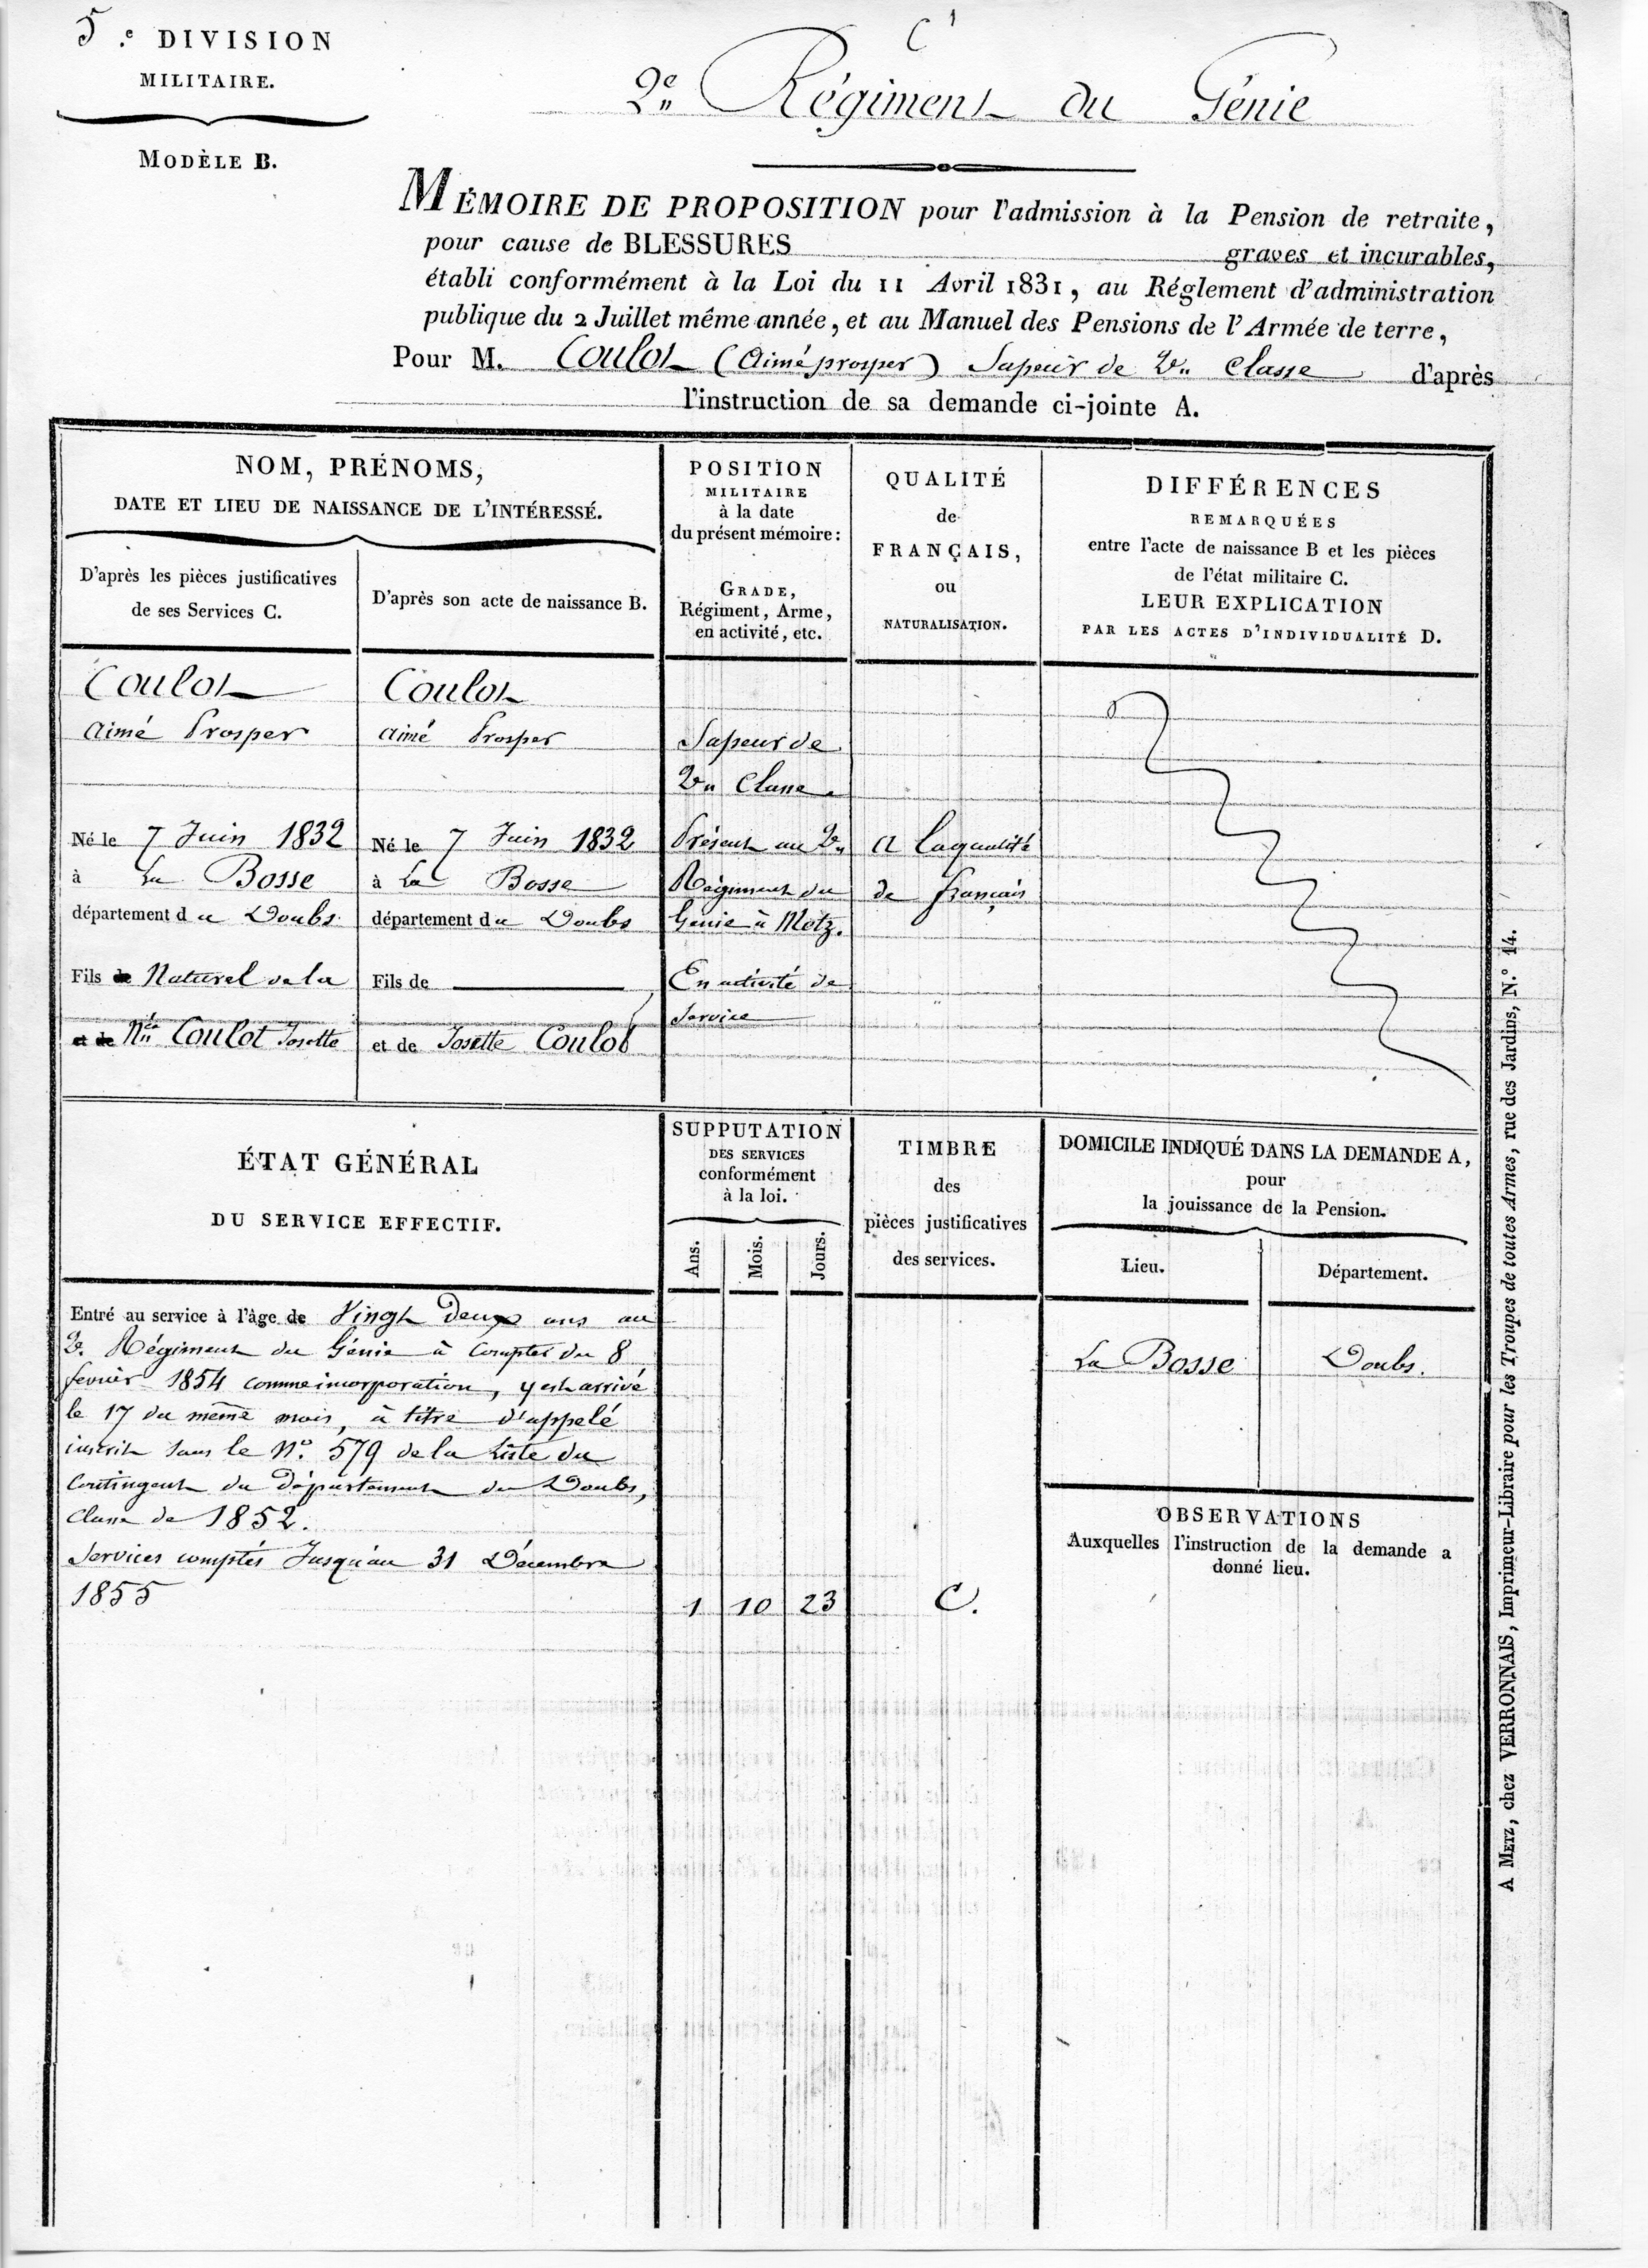 5.e DIVISION
MILITAIRE.
MODÈLE B.
C
2e Régiment du Génie
MÉMOIRE DE PROPOSITION pour l'admission à la Pension de retraite,
pour cause de BLESSURES graves et incurables,
établi conformément à la Loi du 11 Avril 1831, au Réglement d'administration
publique du 2 Juillet même année, et au Manuel des Pensions de l'Armée de terre,
Pour M. Coulot (Aimé prosper) Sapeur de 2e Classe d'après
l'instruction de sa demande ci-jointe A.
NOM, PRÉNOMS,
DATE ET LIEU DE NAISSANCE DE L'INTÉRESSÉ.
D'après les pièces justificatives
de ses Services C.
D'après son acte de naissance B.
POSITION
MILITAIRE
à la date
du présent mémoire:
GRADE,
Régiment, Arme,
en activité, etc.
QUALITÉ
de
FRANÇAIS,
ou
NATURALISATION.
DIFFÉRENCES
REMARQUÉES
entre l'acte de naissance B et les pièces
de l'état militaire C.
LEUR EXPLICATION
PAR LES ACTES D'INDIVIDUALITÉ D.
Coulot
Aimé Prosper
Né le 7 Juin 1832
à La Bosse
département du Doubs
Fils de Naturel de la
et de Née Coulot Josette
Coulot
aimé Prosper
Né le 7 Juin 1832
à La Bosse
département du Doubs
Fils de
et de Josette Coulot
Sapeur de
2e Classe
Présent au 2e
Régiment du
Génie à Metz.
En activité de
service
a la qualité
de français
ÉTAT GÉNÉRAL
DU SERVICE EFFECTIF.
SUPPUTATION
DES SERVICES
conformément
à la loi.
Ans.
Mois.
Jours.
TIMBRE
des
pièces justificatives
des services.
DOMICILE INDIQUÉ DANS LA DEMANDE A,
pour
la jouissance de la Pension.
Lieu.
Département.
Entré au service à l'âge de Vingt deux ans au
2e Régiment du Génie à compter du 8
février 1854 comme incorporation, y est arrivé
le 17 du même mois, à titre d'appelé
inscrit sous le No. 579 de la Liste du
Contingent du Département du Doubs,
Classe de 1852.
Services comptés Jusqu'au 31 Décembre
1855
1 10 23
C.
La Bosse
Doubs.
OBSERVATIONS
Auxquelles l'instruction de la demande a
donné lieu.
A METZ, chez VERRONNAIS, Imprimeur-Libraire pour les Troupes de toutes Armes, rue des Jardins, N.° 14.